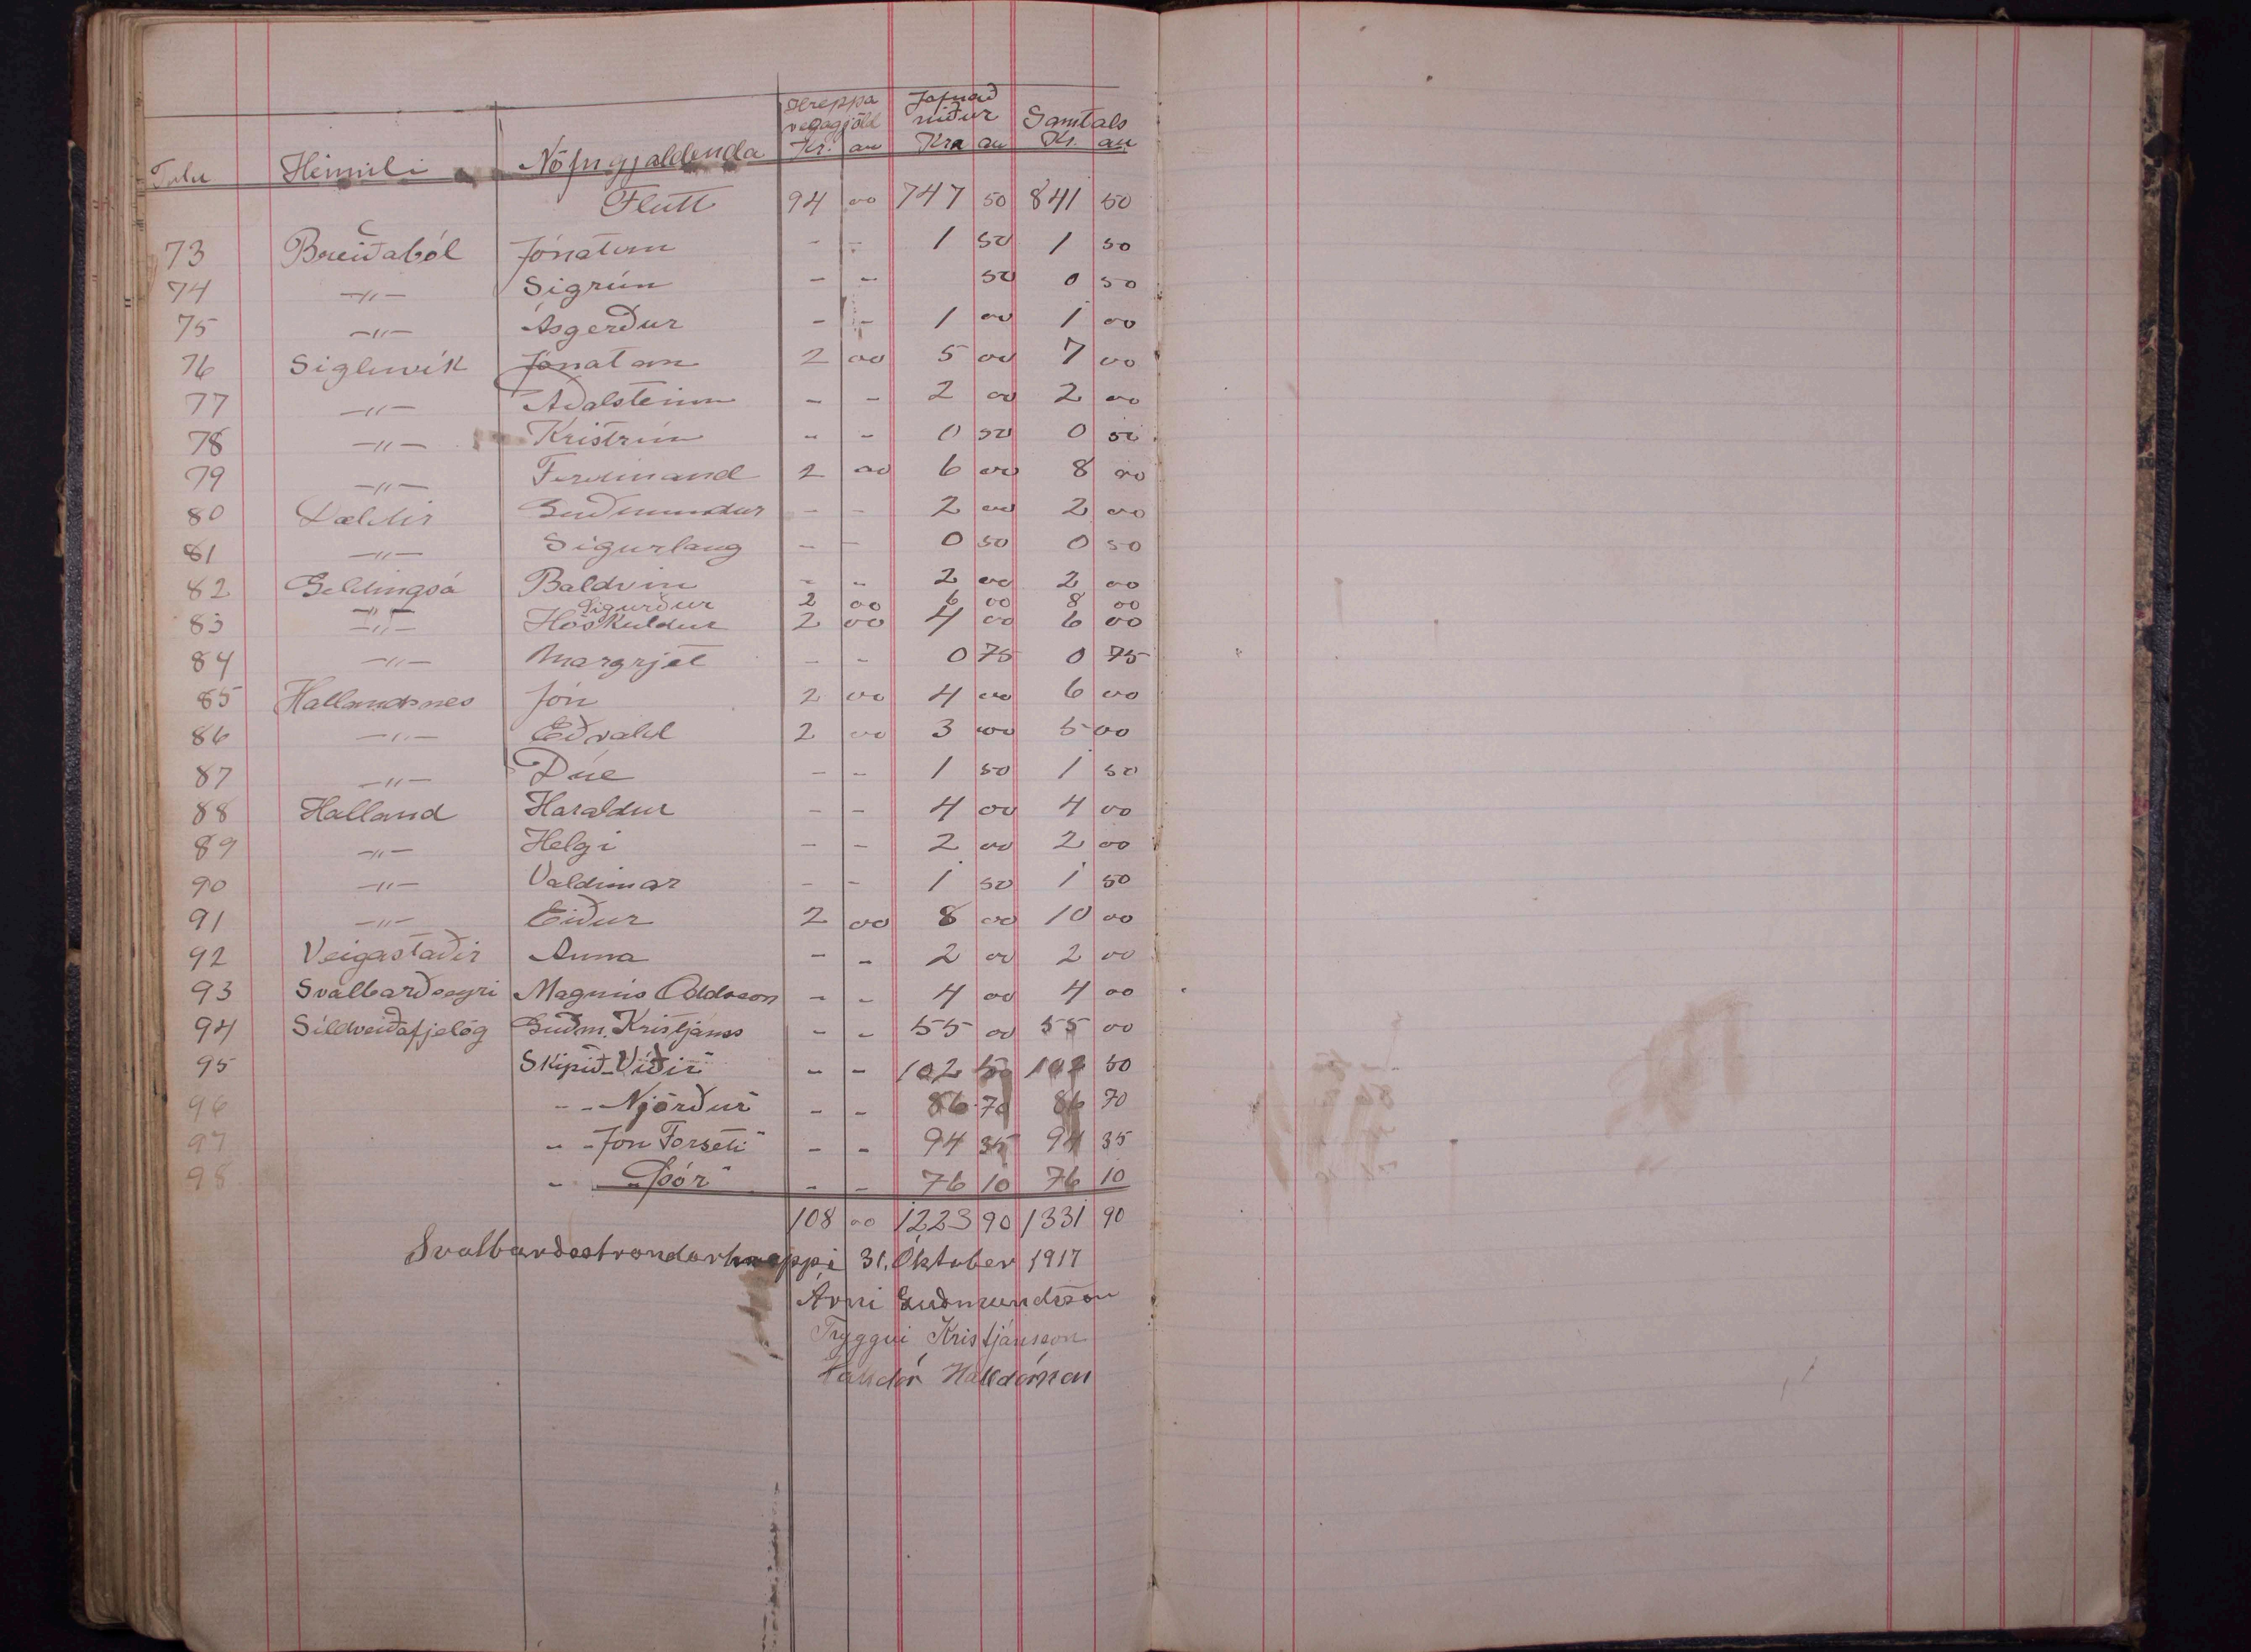 Hreppa vegagjöld Jafnað niður Samtals
Tala Heimili Nöfn gjaldenda Kr. au Kra au Kr. au
Flutt 94 00 747 50 841 50
73 Breiðaból Jónatan - - 1 50 1 50
74 -"- Sigrún - - 50 0 50
75 -"- Ásgerður - - 1 00 1 00
76 Sigluvík Jónatan 2 00 5 00 7 00
77 -"- Aðalsteinn - - 2 00 2 00
78 -"- Kristrún - - 0 50 0 50
79 -"- Ferdinand 2 00 6 00 8 00
80 Dældir Guðmundur - - 2 00 2 00
81 -"- Sigurlaug - - 0 50 0 50
82 Geldingsá Baldvin - - 2 00 2 00
-"- Sigurður 2 00 6 00 8 00
83 -"- Höskuldur 2 00 4 00 6 00
84 -"- Margrjet - - 0 75 0 75
85 Hallandsnes Jón 2 00 4 00 6 00
86 -"- Eðvald 2 00 3 00 5 00
87 -"- Dúe - - 1 50 1 50
88 Halland Haraldur - - 4 00 4 00
89 -"- Helgi - - 2 00 2 00
90 -"- Valdimar - - 1 50 1 50
91 -"- Eiður 2 00 8 00 10 00
92 Veigastaðir Anna - - 2 00 2 00
93 Svalbarðseyri Magnús Oddsson - - 4 00 4 00
94 Síldveiðafjelög Guðm. Kristjánss - - 55 00 55 00
95 Skipið „Víðir" - - 102 50 102 50
96 - „Njörður" - - 86 70 86 70
97 " „Jón Forseti" - - 94 35 94 35
98 " „Þór" - - 76 10 76 10
108 00 1223 90 1331 90
Svalbarðsstrandarhreppi 31. Oktober 1917
Árni Guðmundsson
Tryggvi Kristjánsson
Halldór Halldórsson